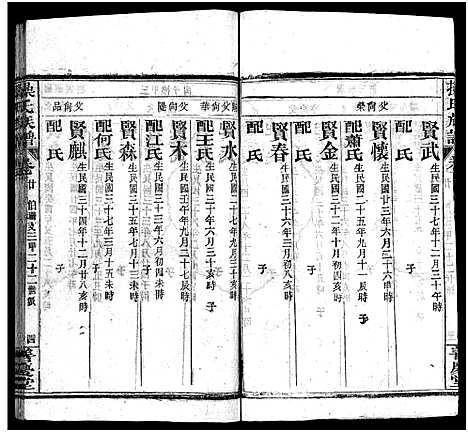 操氏族譜
父向榮
賢武 生民國三十一年十二月三十午時
配 氏 子
賢懷 生民國廿三年六月十六申時
配蕭氏 生民國二十五年九月十一戌時
子
賢金 生民國三十年十月初四亥時
配 氏 子
賢春 生民國三十六年三月初八亥時
配 氏 子
父向華
賢水 生民國三十年二月二十亥時
配王氏 生民國三十七年三月二十亥時 子
父向隆
賢木 生民國壬午年九月二十七辰時
配江氏 生民國三十三年六月初四未時
子
父向品
賢森 生民國三十五年七月十三未時
配何氏 生民國三十七年三月十五未時
子
賢麒 生民國三十四年十二月廿八亥時
配 氏 子
操氏族譜
卷廿
四
善慶堂